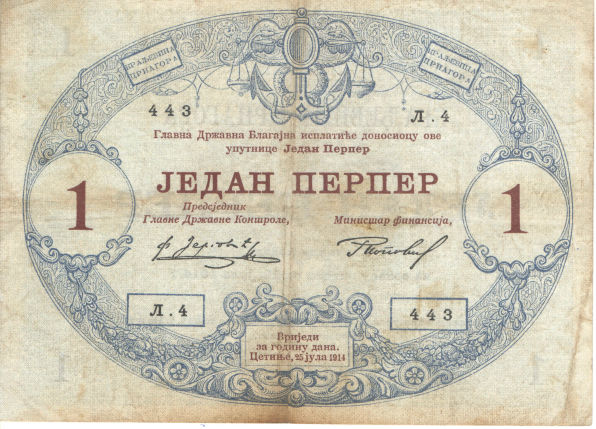 КРАЉЕВИНА
ЦРНАГОРА
КРАЉЕВИНА
ЦРНАГОРА
443
Л.4
Главна Државна Благајна исплатиће доносиоцу ове
упутнице Један Перпер
ЈЕДАН ПЕРПЕР
1
1
Предсједник
Главне Државне Контроле,
Министар финансија,
Л.4
443
Вриједи
за годину дана.
Цетиње, 25 јула 1914